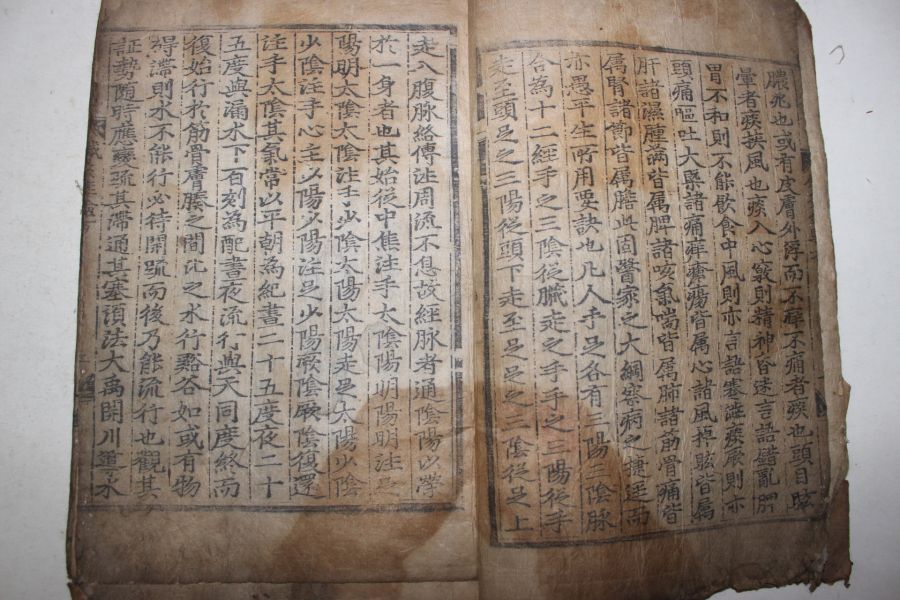 膿死也或有皮膚外浮而不痒不痛者痰也頭目眩
暈者痰挾風也痰入心竅則精神昏迷言語錯亂脾
胃不和則不能飮食中風則亦言語蹇澁痰厥則亦
頭痛嘔吐大槩諸痛痒瘡瘍皆属心諸風掉眩皆属
肝諸濕腫滿皆属脾諸咳氣喘皆属肺諸筋骨痛皆
属腎諸節皆属膽此固醫家之大綱察病之捷逕而
亦愚平生所用要訣也凡人手足各有三陽三陰脉
合為十二經手之三陰從臟走之手手之三陽從手
走至頭足之三陽從頭下走至足足之三陰從足上
走入腹脉絡傳注周流不息故經脉者通陰陽以榮
於一身者也其始從中焦注手太陰陽明陽明注足
陽明太陰太陰注手少陰太陽太陽走足太陽少陰
少陰注手心主少陽少陽注足少陽厥陰厥陰復還
注手太陰其氣常以平朝為紀晝二十五度夜二十
五度與漏水下百刻為配晝夜流行與天同度終而
復始行於筋骨膚腠之間比之水行谿谷如或有物
碍滯則水不能行必待開䟽而後乃能流行也觀其
証勢随時應変疏其滯通其塞須法大禹開川導水